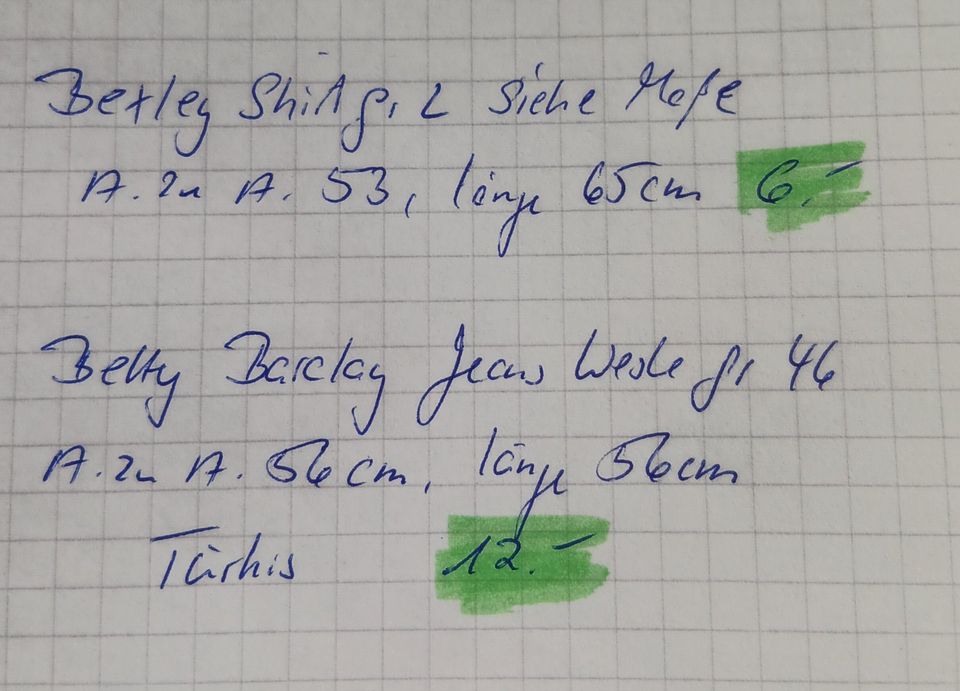 Bexley Shirt gr L Siehe Maße
A. zu A. 53, länge 65cm 6.-
Betty Barclay Jeans Weste gr 46
A. zu A. 56cm, länge 56cm
Türkis 12.-